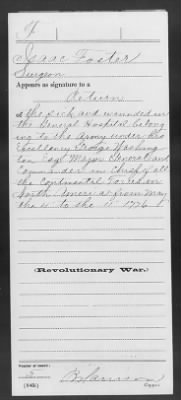 F
Isaac Foster
Surgeon
Appears as signature to a
Return
of the sick and wounded in
the General Hospital belong
ing to the Army under His
Excellency George Washing
ton Esqr Major General and
Commander in Chief of all
the Continental Forces in
North America from May
the 4" to the 11" 1776
(Revolutionary War.)
Number of record:
(545)
Copyist.